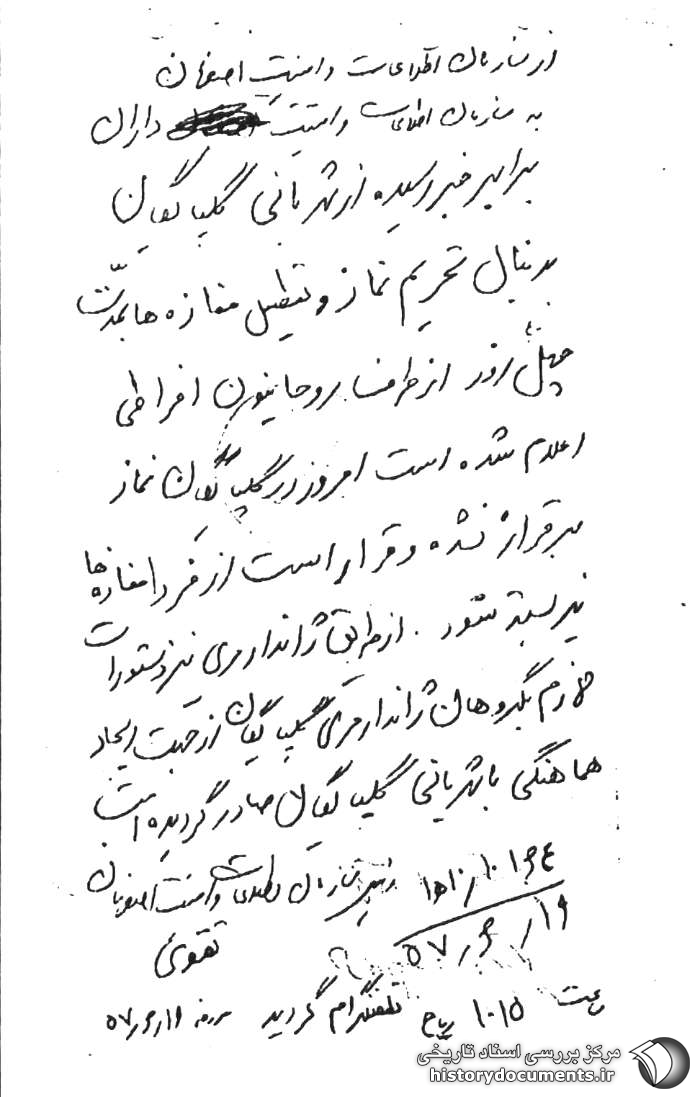 از سازمان اطلاعات و امنیت اصفهان
به سازمان اطلاعات و امنیت داران
برابر خبر رسیده از شهربانی گلپایگان
بدنبال تحریم نماز و تعطیل مغازه ها بمدت
چهل روز از طرف روحانیون افراطی
اعلام شده است امروز در گلپایگان نماز
برقرار نشده و قرار است از فردا مغازه ها
نیز بسته شود. از طریق ژاندارمری نیز دستورات
لازم بگروهان ژاندارمری گلپایگان از جهت ایجاد
هماهنگی با شهربانی گلپایگان صادر گردیده است
رئیس سازمان اطلاعات و امنیت اصفهان
تقوی
۱۹/۶/۵۷
ساعت ۱۰۱۵ تلفنگرام گردید مورخه ۱۹/۶/۵۷
مرکز بررسی اسناد تاریخی
historydocuments.ir